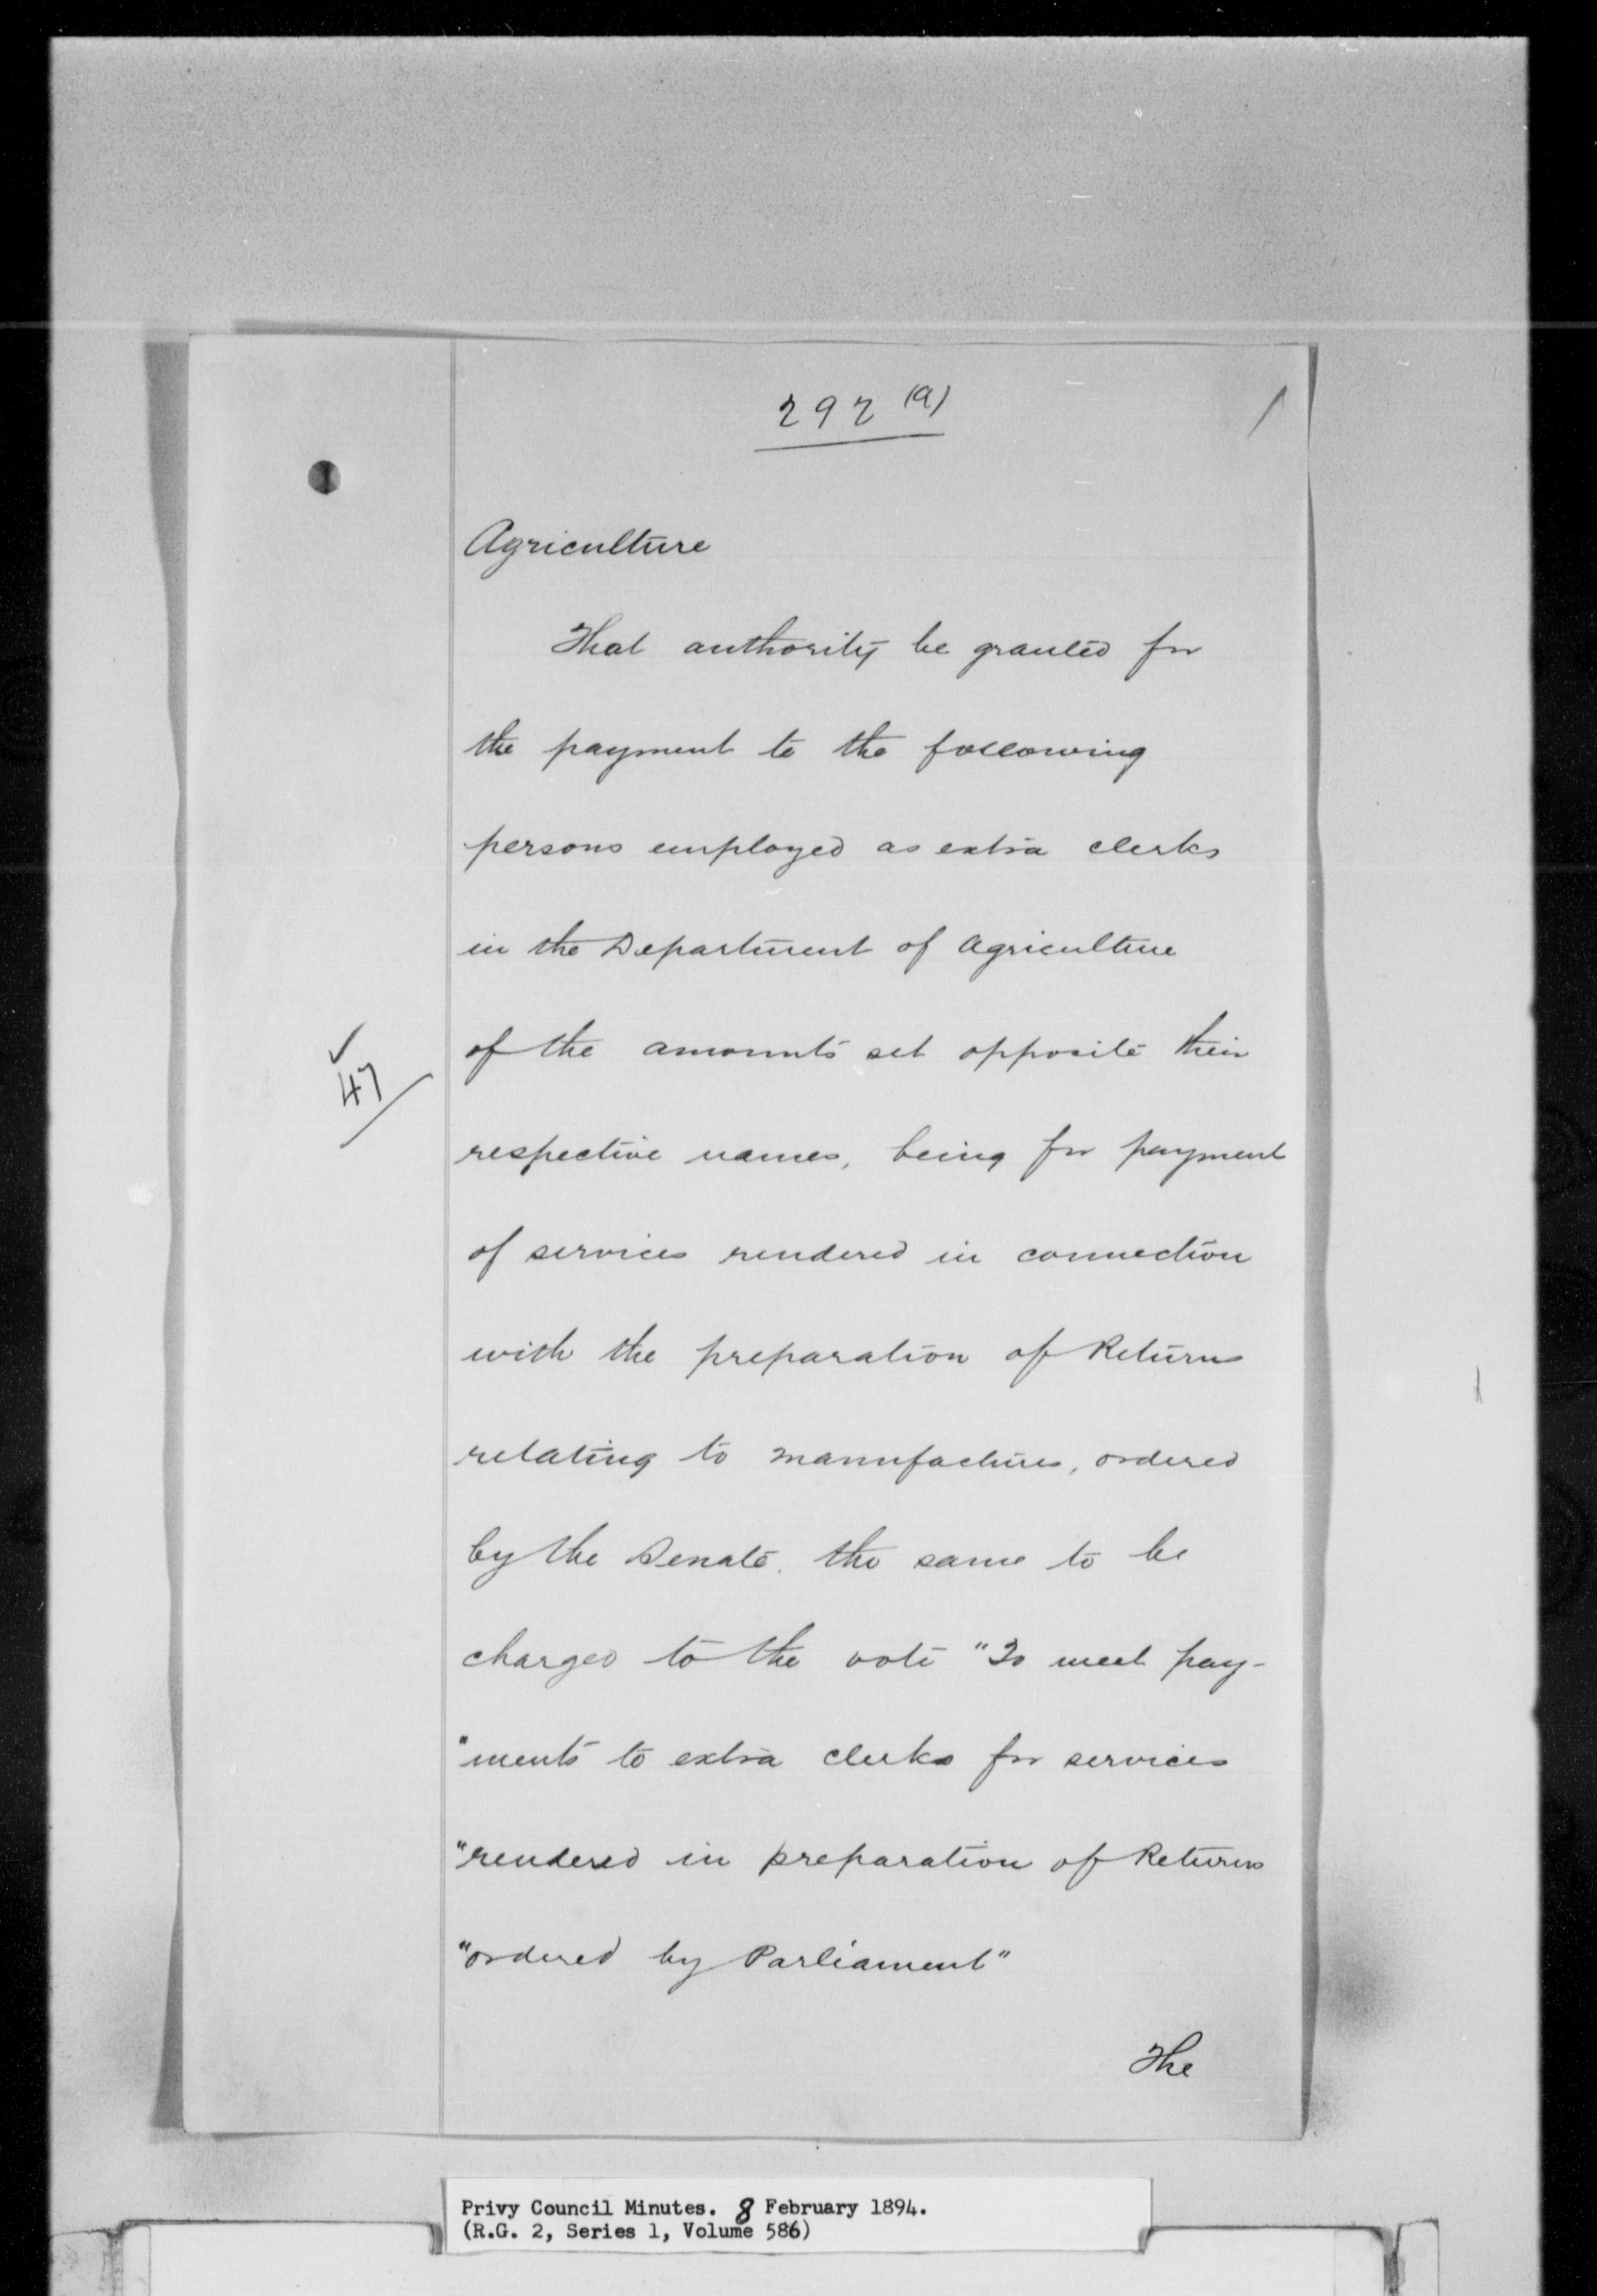 292 (a)
Agriculture
That authority be granted for
the payment to the following
persons employed as extra clerks
in the Department of Agriculture
of the amounts set opposite their
47
respective names, being for payment
of services rendered in connection
with the preparation of Returns
relating to manufactures, ordered
by the Senate. the same to be
charged to the vote "To meet pay-
"ments to extra clerks for services
"rendered in preparation of Returns
"ordered by Parliament"
The
Privy Council Minutes. 8 February 1894.
(R.G. 2, Series 1, Volume 586)